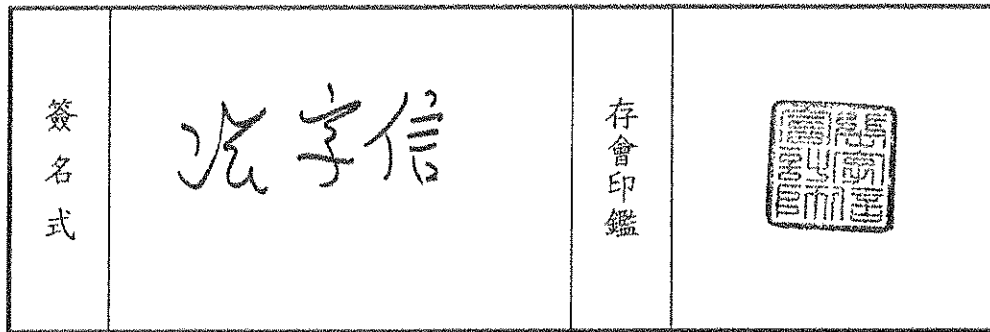 簽名式
張字信
存會印鑑